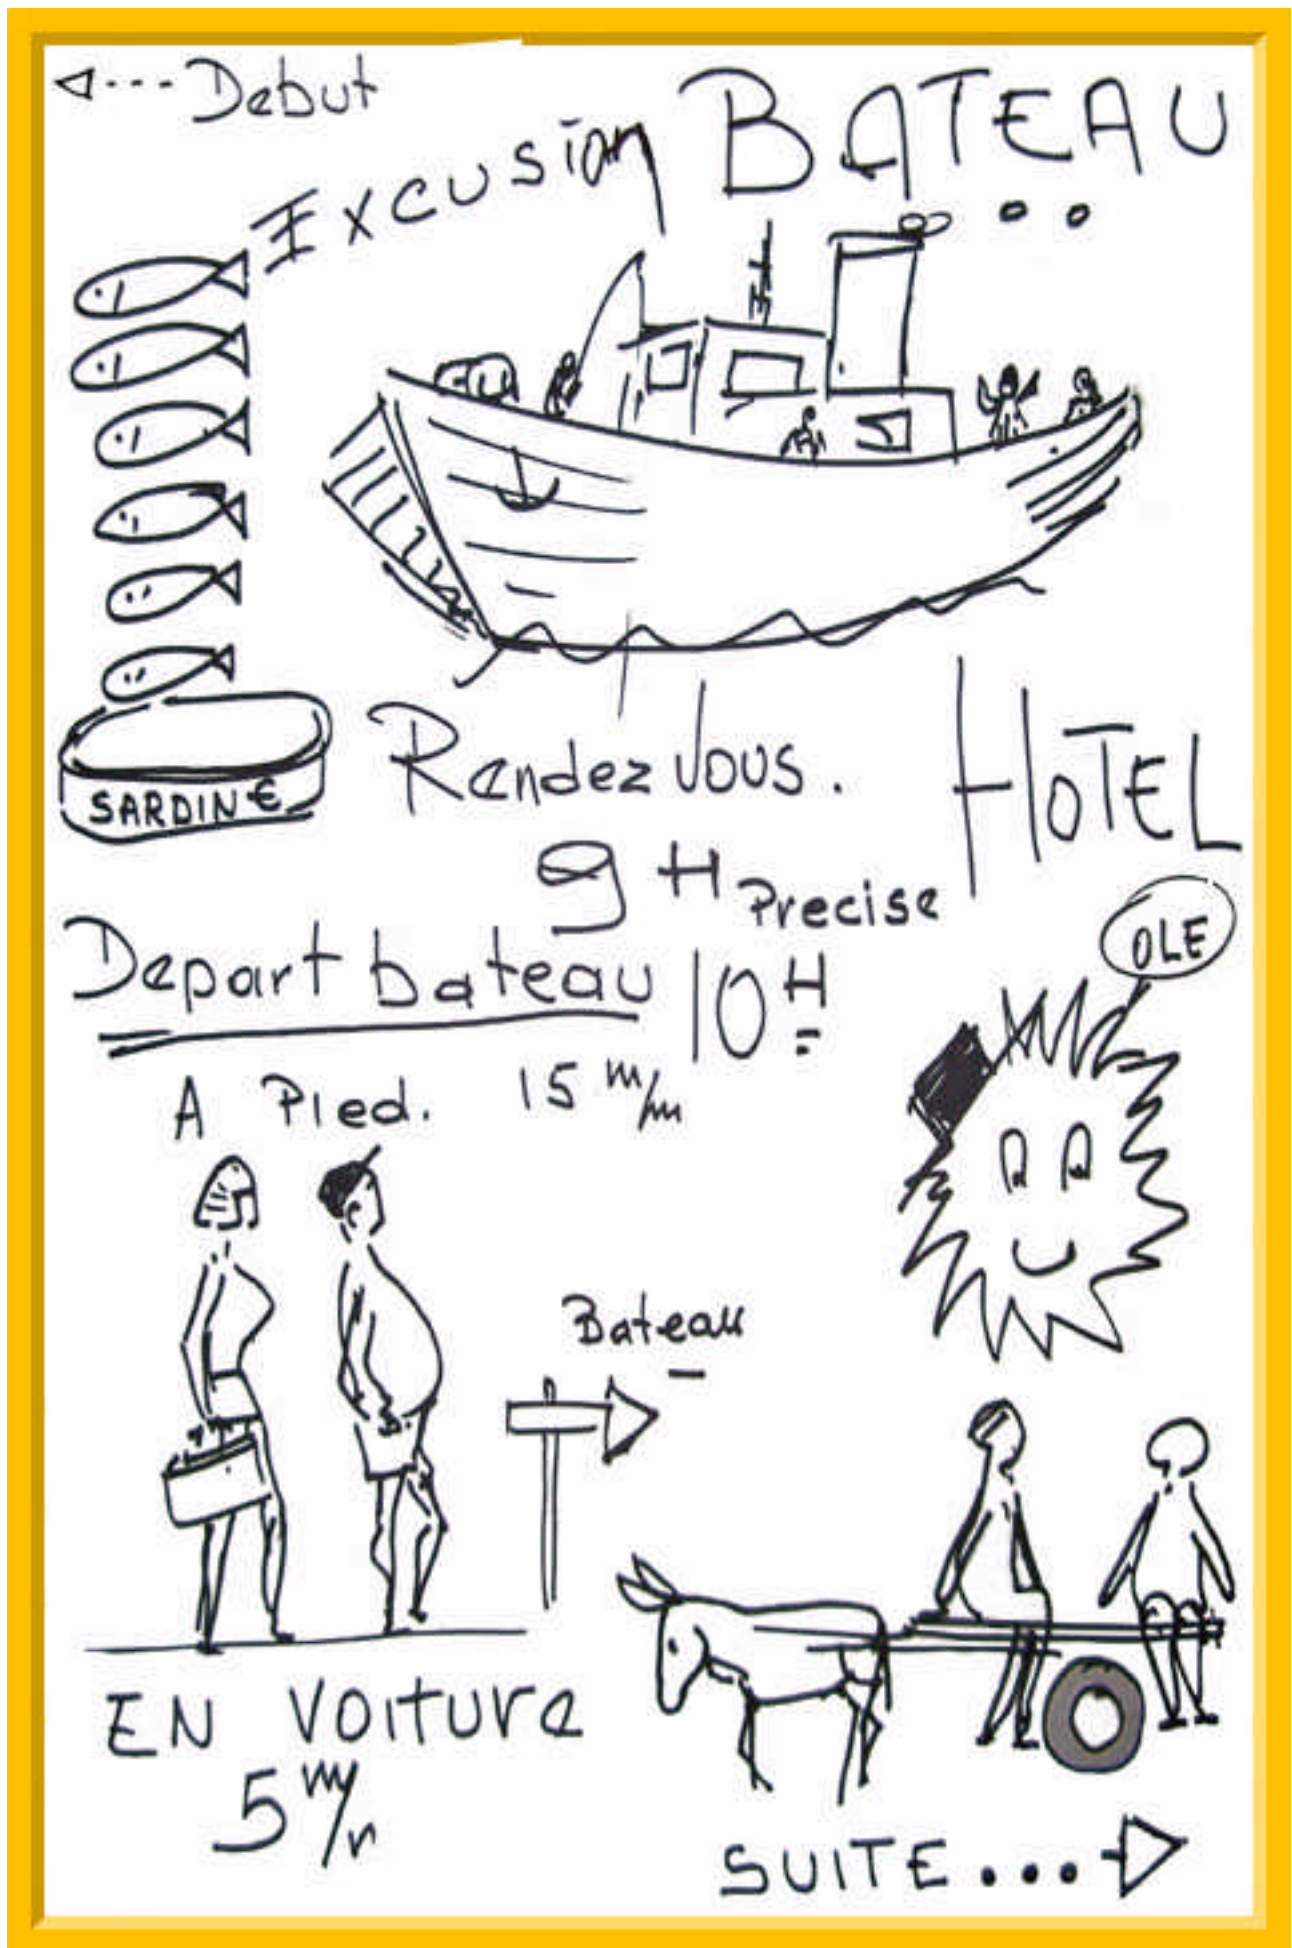 Debut
Excusion BATEAU
SARDIN€
Rendez Vous.
HOTEL
9 H Precise
OLE
Depart bateau 10 H
A Pied. 15 m/m
Bateau
EN VOITURE
5 m/n
SUITE...